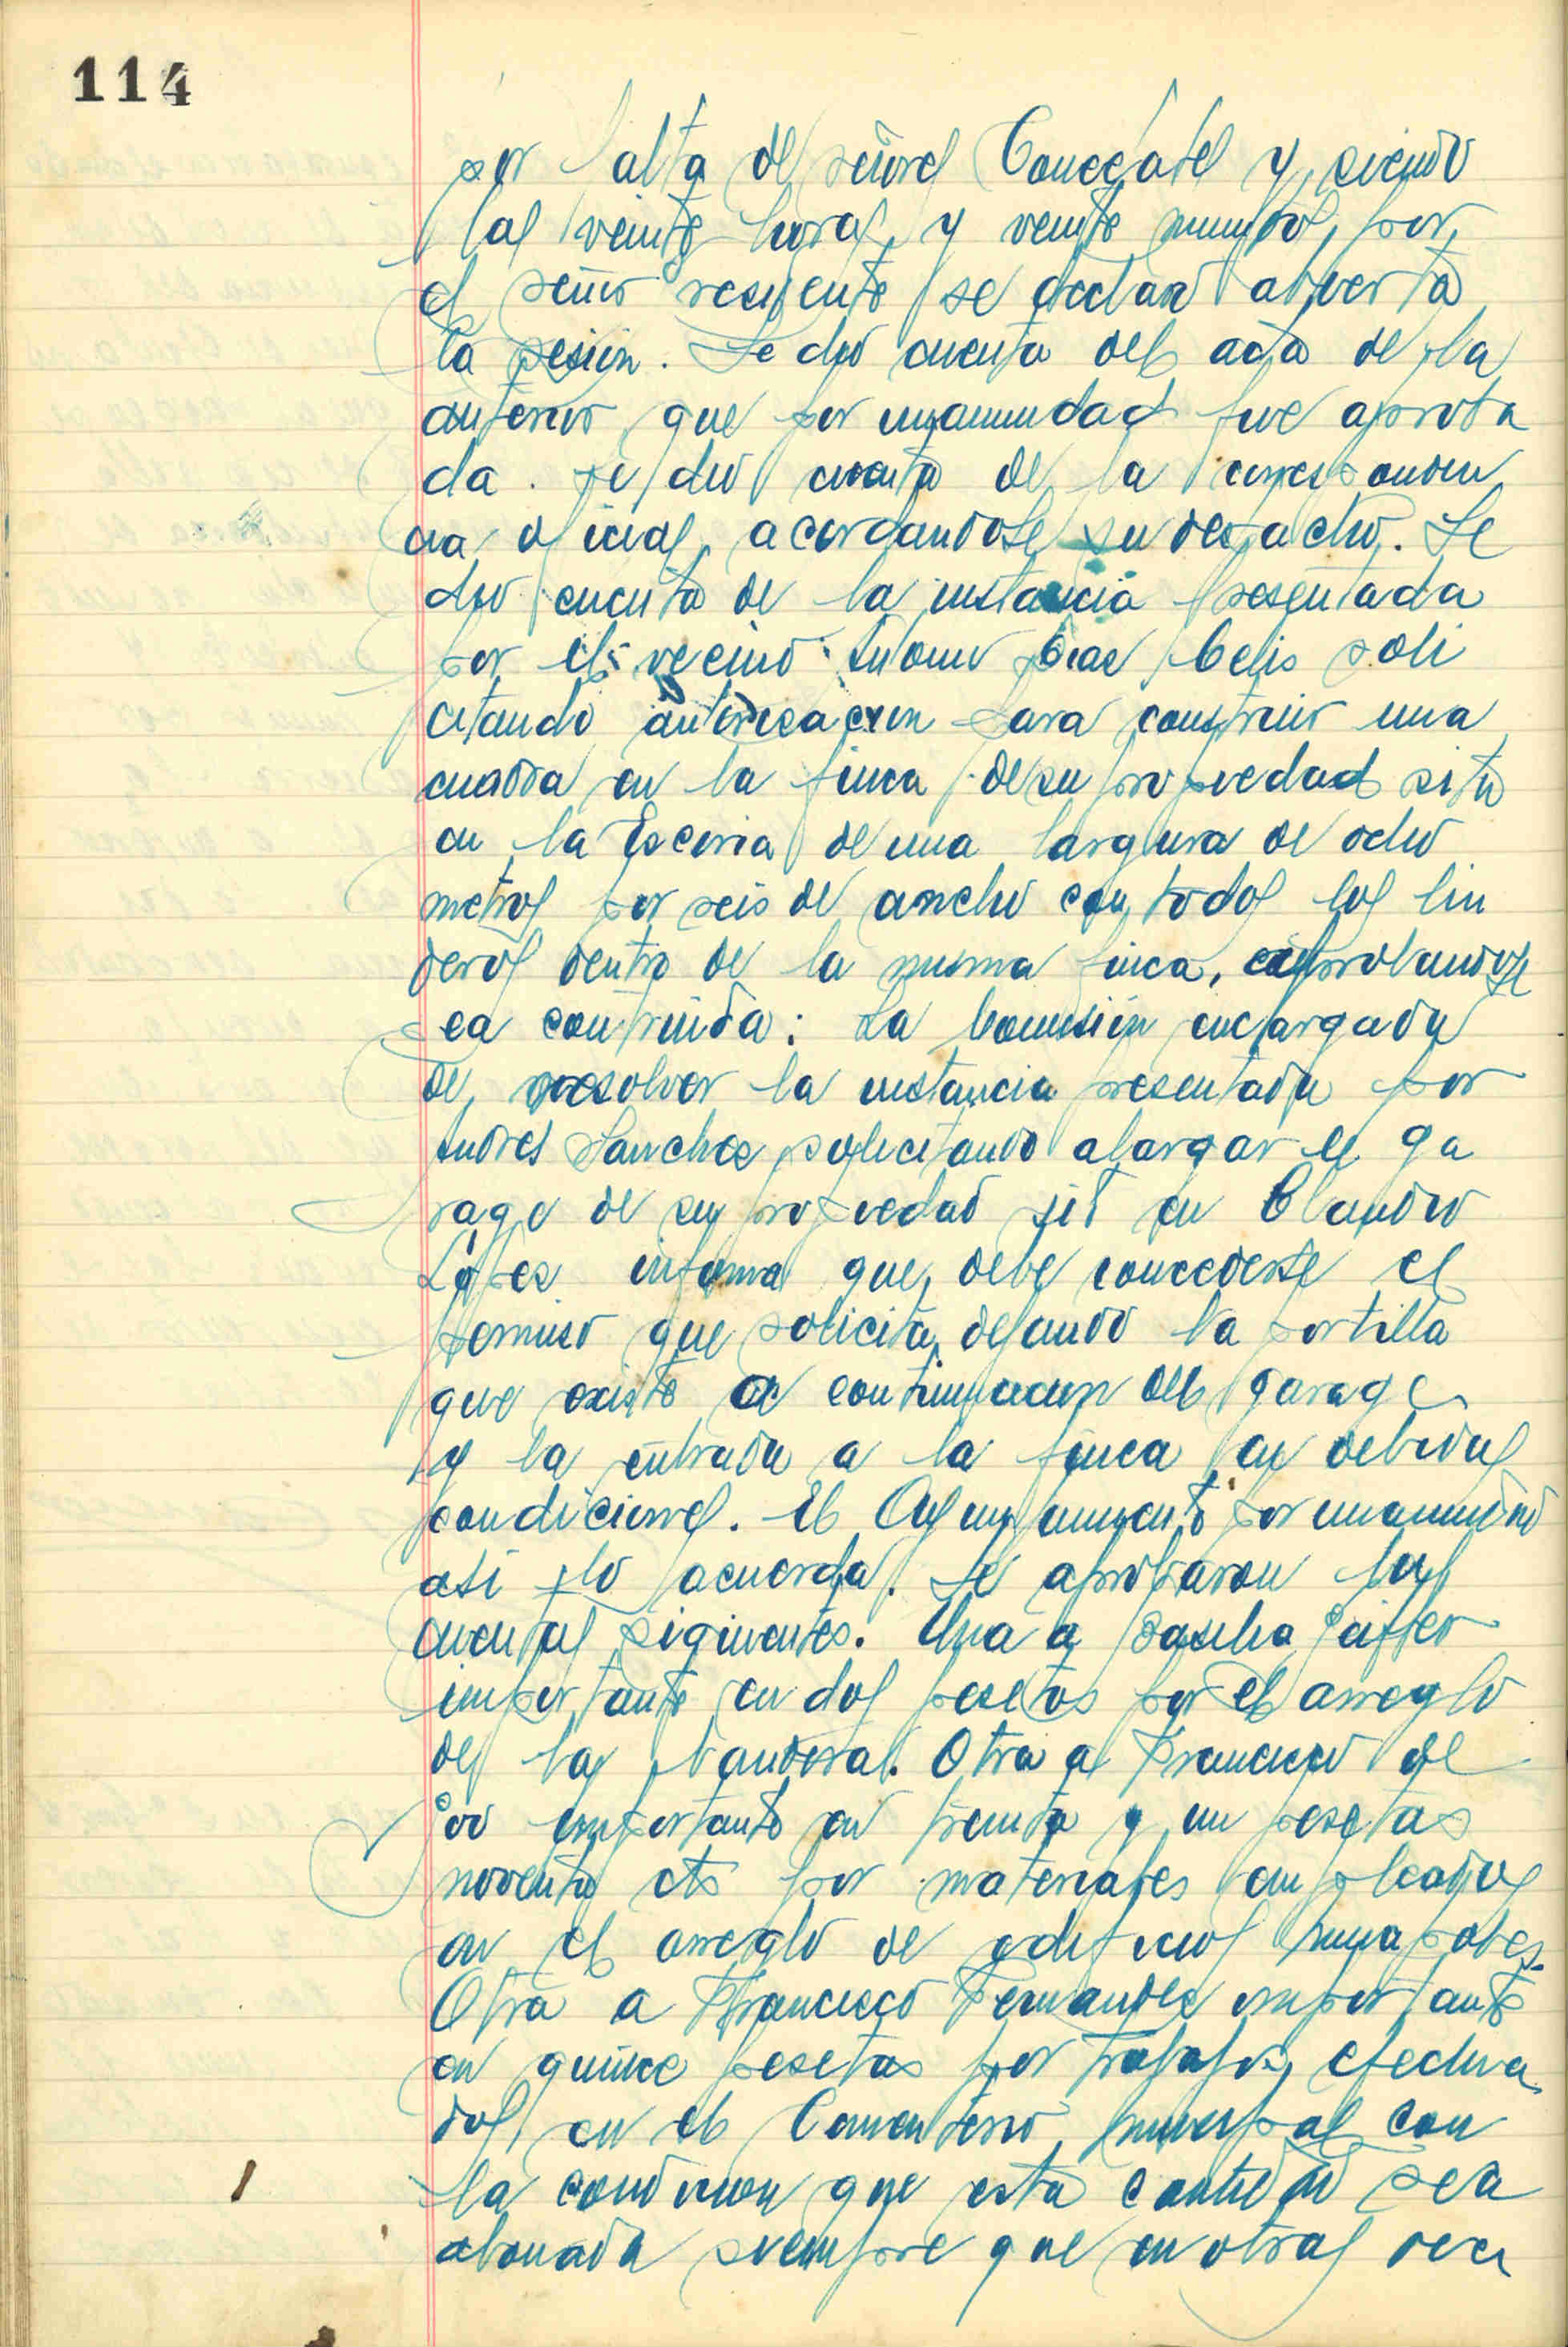 114
por falta de señores Concejales y siendo
las veinte horas y veinte minutos, por
el señor Presidente se declaró abierta
la sesión. Se dio cuenta del acta de la
anterior que por unanimidad fue aproba
da. Se dio cuenta de la corresponden
cia oficial, acordandose su despacho. Se
dio cuenta de la instancia presentada
por el vecino Antonio Diaz Celis soli
citando autorizacion para construir una
cuadra en la finca de su propiedad sito
en la Escoria de una largura de ocho
metros por seis de ancho con todos los lin
deros dentro de la misma finca, aprobandose
sea contruida: La Comisión encargada
de resolver la instancia presentada por
Andres Sanchez solicitando alargar el ga
rage de su propiedad sit en Claudio
López informa que debe concederse el
permiso que solicita, dejando la portilla
que existe a continuacion del garage
y la entrada a la finca en debidas
condiciones. El Ayuntamiento por unanimidad
asi lo acuerda. Se aprobaron las
cuentas siguientes. Una a
importante en dos pesetas por el arreglo
de la bandera. Otra a Francisco de
importante en treinta y un pesetas
noventa cts por materiales empleados
en el arreglo de edificios municipales.
Otra a Francisco Fernandez importante
en quince pesetas por trabajos efectua
dos en el Cementerio municipal con
la condicion que esta cantidad sea
abonada siempre que en otras oca